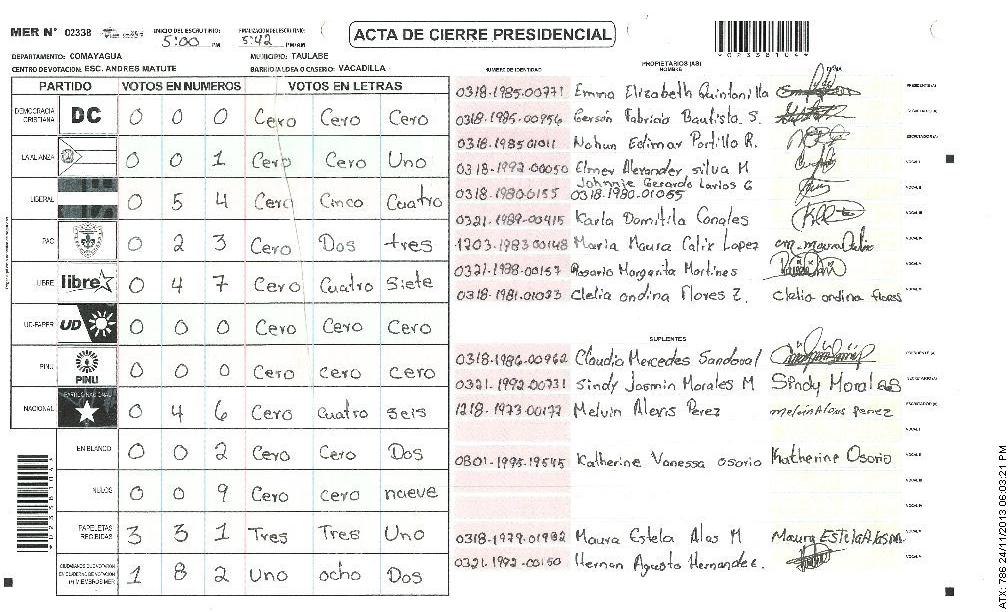 MER N° 02338
INICIO DEL ESCRUTINIO: 5:00 PM
FINALIZACION DEL ESCRUTINIO: 5:42 PM/AM
ACTA DE CIERRE PRESIDENCIAL
DEPARTAMENTO: COMAYAGUA
MUNICIPIO: TAULABE
CENTRO DE VOTACION: ESC. ANDRES MATUTE
BARRIO/ALDEA O CASERIO: VACADILLA
PARTIDO VOTOS EN NUMEROS VOTOS EN LETRAS
DEMOCRACIA CRISTIANA DC 0 0 0 Cero Cero Cero
LA ALIANZA 0 0 1 Cero Cero Uno
LIBERAL 0 5 4 Cero Cinco Cuatro
PAC 0 2 3 Cero Dos tres
LIBRE libre 0 4 7 Cero Cuatro Siete
UD-FAPER UD 0 0 0 Cero Cero Cero
PINU PINU 0 0 0 Cero cero cero
NACIONAL PARTIDO NACIONAL 0 4 6 Cero cuatro seis
EN BLANCO 0 0 2 Cero Cero Dos
NULOS 0 0 9 Cero cero nueve
PAPELETAS RECIBIDAS 3 3 1 Tres Tres Uno
1 8 2 Uno ocho Dos
PROPIETARIOS (AS)
NUMERO DE IDENTIDAD NOMBRE FIRMA
0318-1985-00771 Emma Elizabeth Quintanilla
0318-1985-00956 Gerson Fabricio Bautista S.
0318-198501011 Nohun Edimar Portillo R.
0318-1992-00050 Elmer Alexander silva M
0318-1980-0155 Johnnie Gerardo Larios G
0318-1980-01055
0321-1989-00415 Karla Domitila Canales
1203-1983-00148 Maria Maura Calix Lopez
0321-1988-00157 Rosario Margarita Martines
0318-1981-01033 Clelia ondina Flores Z. Clelia ondina flores
SUPLENTES
0318-1986-00962 Claudia Mercedes Sandoval
0321-1992-00731 Sindy Jasmin Morales M Sindy Morales
1218-1973-00177 Melvin Alexis Perez
0801-1995-19545 Katherine Vanessa osorio Katherine Osorio
0318-1979-01982 Maura Estela Alas M
0321-1972-00150 Hernan Agusto Hernandez.
ATX: 786 24/11/2013 06:03:21 PM